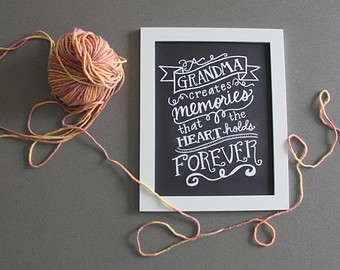 A
GRANDMA
creates
MEMORIES
that the
HEART holds
FOREVER